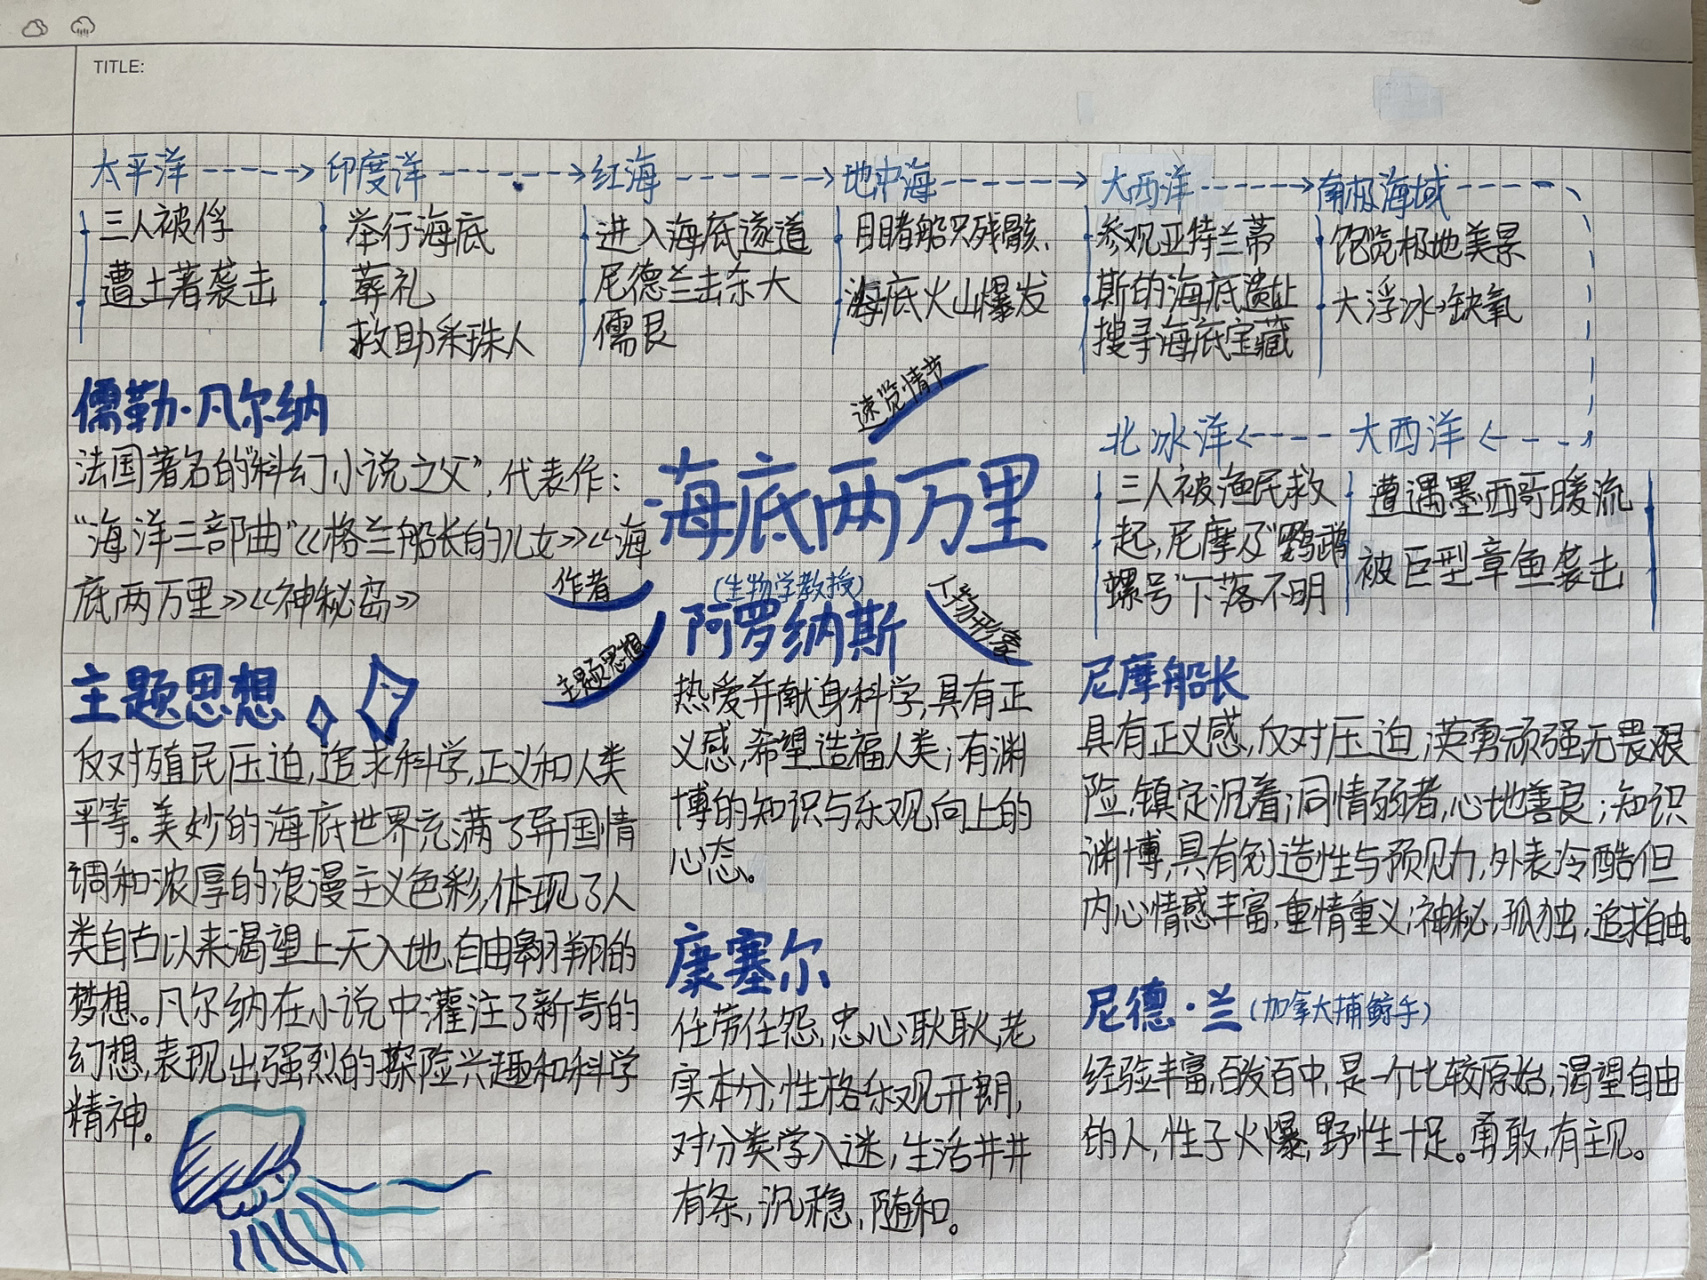 TITLE:
太平洋 印度洋 红海 地中海 大西洋 南极海域
三人被俘
遭土著袭击
举行海底
葬礼
救助采珠人
进入海底遂道
尼德兰击杀大
儒艮
目睹船只残骸、
海底火山爆发
参观亚特兰蒂
斯的海底遗址
搜寻海底宝藏
饱览极地美景
大浮冰缺氧
北冰洋 大西洋
三人被渔民救
起,尼摩及"鹦鹉
螺号"下落不明
遭遇墨西哥暖流
被巨型章鱼袭击
速览情节
海底两万里
作者
主题思想
人物形象
儒勒·凡尔纳
法国著名的"科幻小说之父",代表作:
"海洋三部曲"《格兰船长的儿女》《海
底两万里》《神秘岛》
主题思想
反对殖民压迫,追求科学,正义和人类
平等。美妙的海底世界充满了异国情
调和浓厚的浪漫主义色彩,体现了人
类自古以来渴望上天入地、自由翱翔的
梦想。凡尔纳在小说中灌注了新奇的
幻想,表现出强烈的探险兴趣和科学
精神。
(生物学教授)
阿罗纳斯
热爱并献身科学,具有正
义感,希望造福人类;有渊
博的知识与乐观向上的
心态。
康塞尔
任劳任怨,忠心耿耿,老
实本分,性格乐观开朗,
对分类学入迷,生活井井
有条,沉稳,随和。
尼摩船长
具有正义感,反对压迫,英勇顽强无畏艰
险,镇定沉着;同情弱者,心地善良;知识
渊博,具有创造性与预见力,外表冷酷但
内心情感丰富,重情重义;神秘,孤独,追求自由。
尼德·兰(加拿大捕鲸手)
经验丰富,百发百中,是一个比较原始,渴望自由
的人,性子火爆,野性十足。勇敢,有主见。